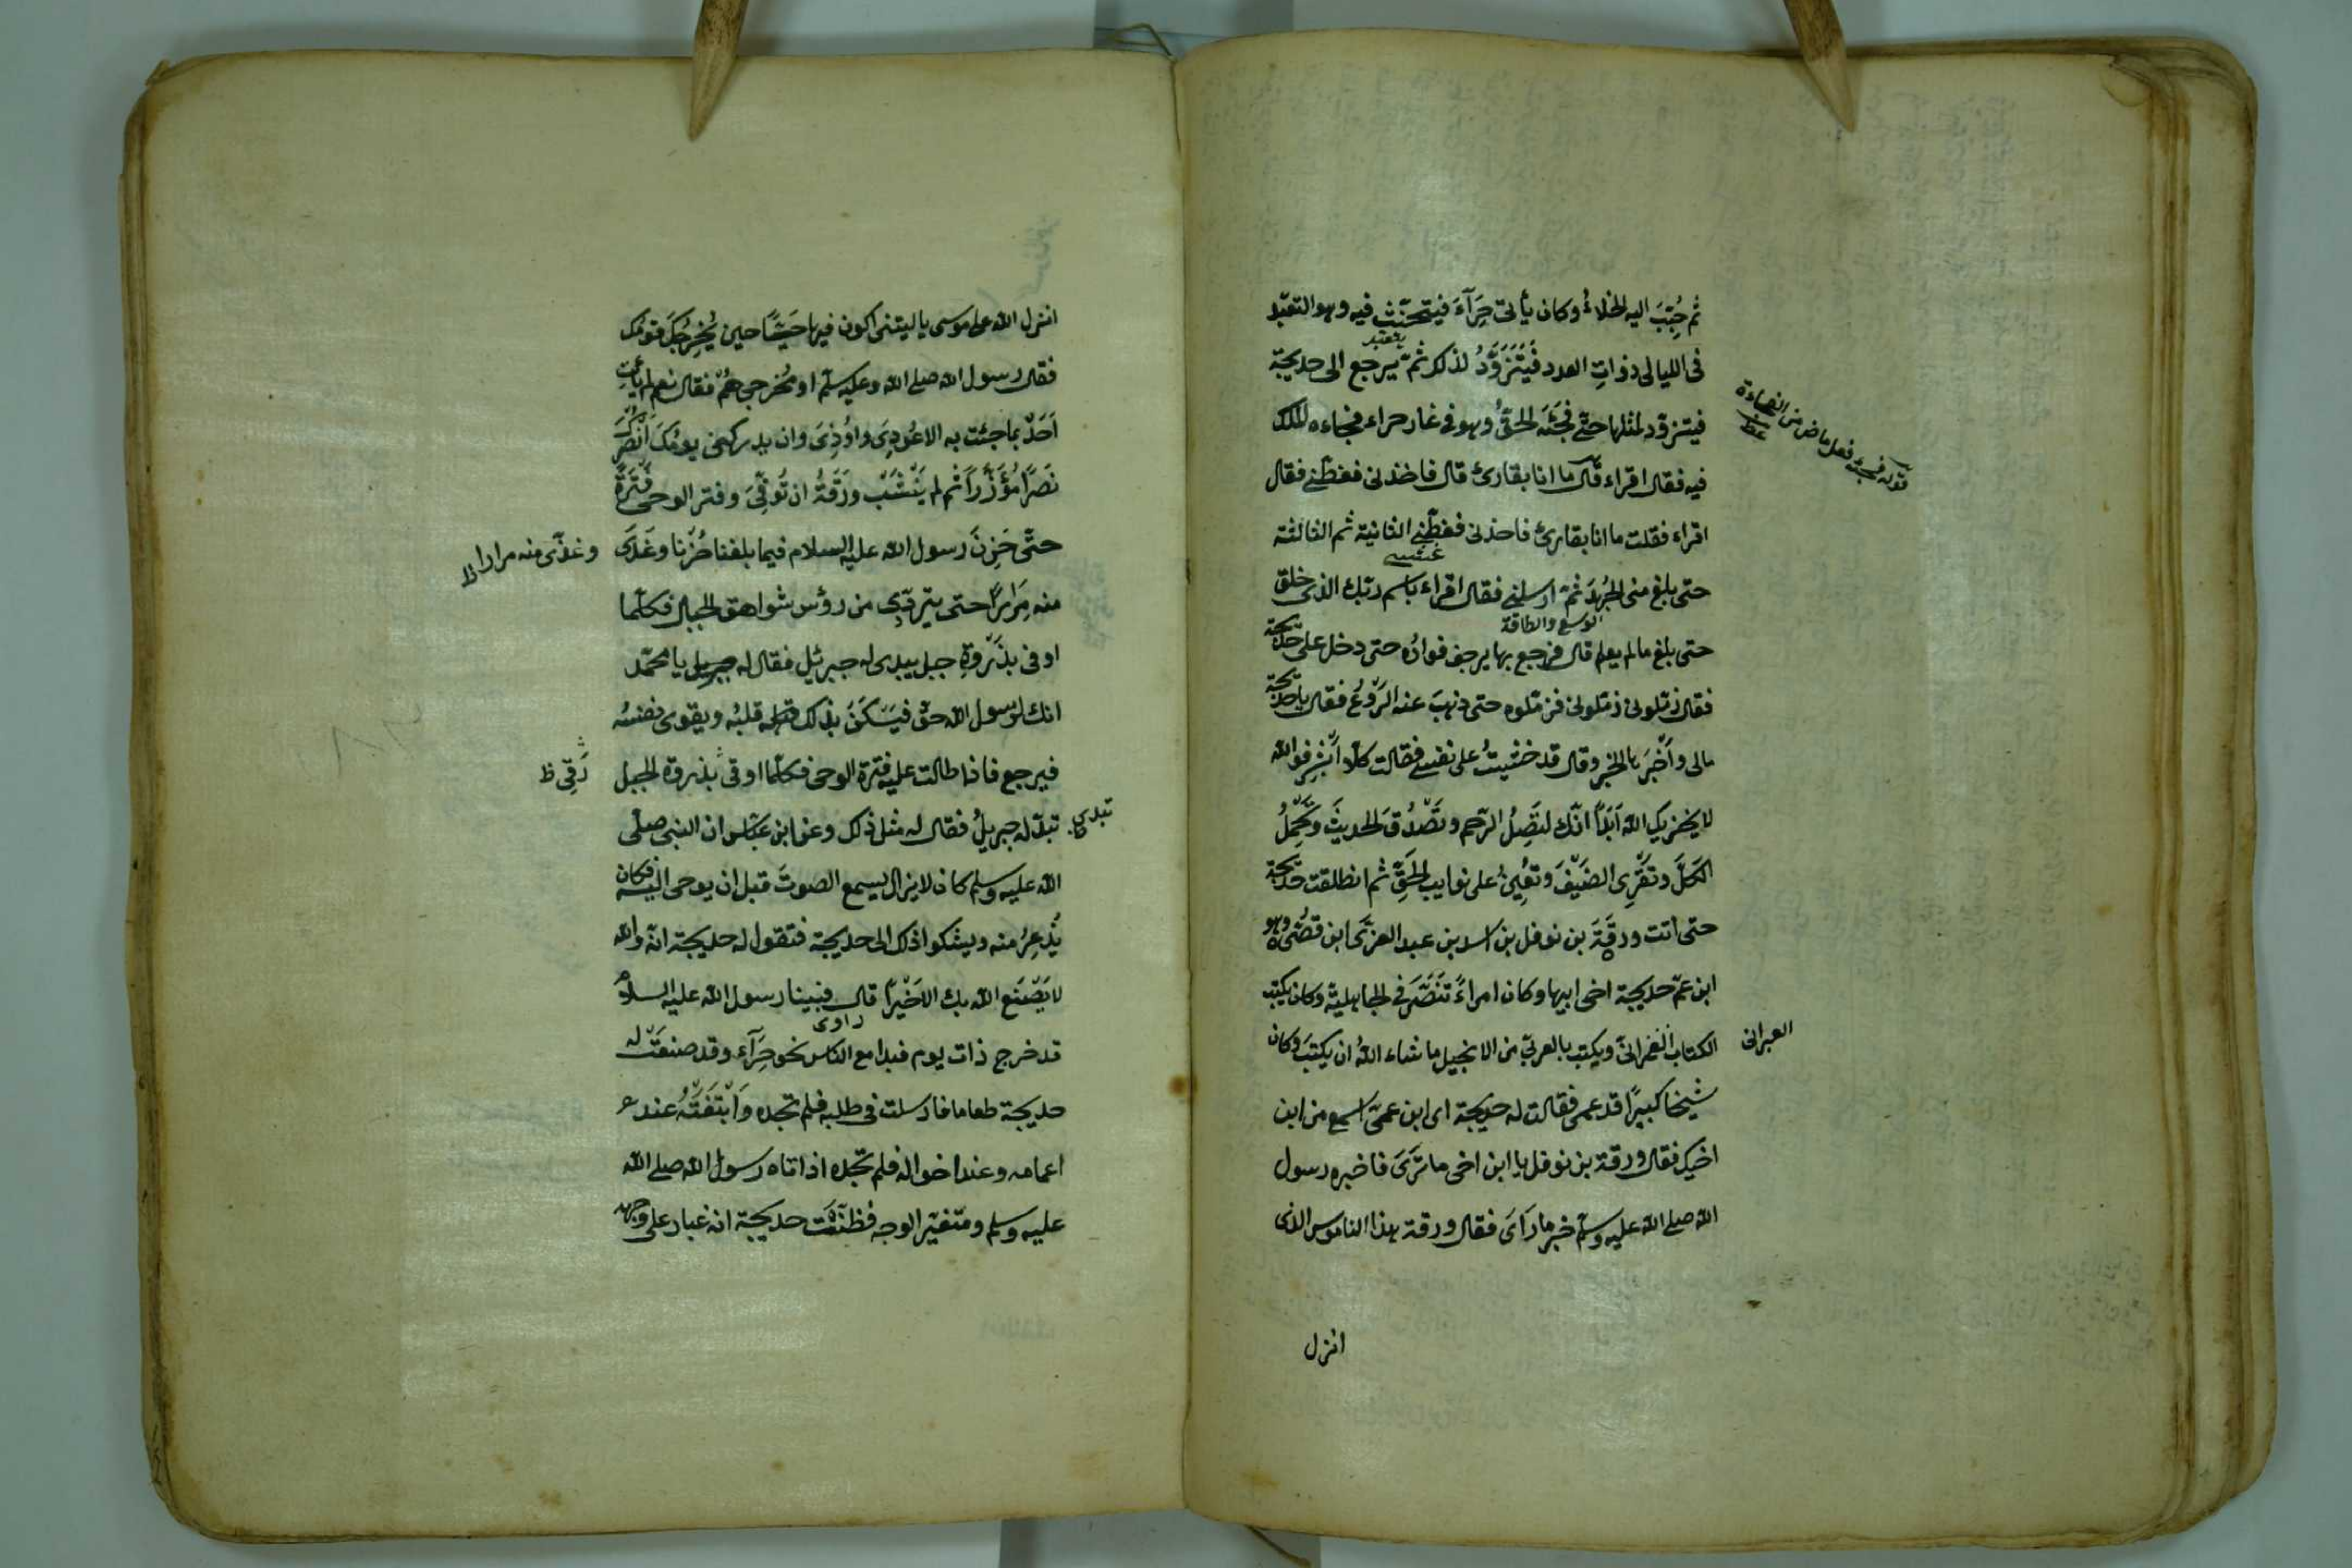 ثم حُبِّبَ اليه الخلاءُ وكان يأتى حِرَآءَ فيتحنّث فيه وهو التعبّد
يتعبد
فى الليالى ذواتِ العدد فَيَتَزَوَّدُ لذلك ثمّ يرجع الى خديجة
فيتزوّد لمثلها حتّى فَجِئَهَ الحقُّ وهو فى غار حراء فجاءه الملك
قوله فجئه فعل ماض من الفجاءة
عظ
فيه فقال اقراء قال ما انا بقارئ قال فاخذنى فغطّنى فقال
اقراء فقلت ما انا بقارئ فاخذنى فغطّنى الثانية ثم الثالثة
حتى بلغ منى الجُهدَ ثمّ ارسلنى فقال اقراء باسم ربّك الذى خلق
الوسع والطاقة
حتى بلغ مالم يعلم قال فرجع بها يرجف فوادُه حتى دخل على خديجة
فقال زمّلونى زمّلونى فزمّلوه حتى ذهبَ عنه الرَّوْعُ فقال يا خديجة
مالى وأَخْبَرَها الخبر وقال قد خشيتُ على نفسى فقالت كلّا أَبْشِرْ فوالله
لا يخزيك الله اَبَداً انّك لتَصِلُ الرّحم وتَصْدُقَ الحديثَ وتَحْمِلُ
الكَلَّ وتَقْرِى الضَيْفَ وتُعِينُ على نوايب الحَقِّ ثم انطلقت خديجة
حتى اتت ورقَةَ بن نوفل بن اسد بن عبد العزّى ابن قُصَىّ وهو
ابن عمّ خديجة اخى ابيها وكان امراءً تَنَصَّرَ فى الجاهلية وكان يكتب
الكتاب العبرانىّ ويكتب بالعربىّ من الانجيل ما شاء اللهُ ان يكتبَ وكان
العبرانى
شيخا كبيرًا قد عمى فقالت له خديجة اى ابن عمّى اسمع من ابن
اخيك فقال ورقة بن نوفل يا ابن اخى ما تَرَى فاخبره رسول
الله صلى الله عليه وسلّم خبر ما رَاَى فقال ورقة هذا الناموس الذى
انزل
انزل الله على موسى يا ليتنى اكون فيها حَيًّا حين يُخْرِجُكَ قومُك
فقال رسول الله صلى الله وعليه سلّم او مُخرجى هُمْ فقال نعم لم يأتِ
اَحَدٌ بما جئت به الا عُودِىَ واُوذِىَ وان يدركنى يومُكَ اَنْصُرْكَ
نَصْرًا مُؤَزَّرًا ثم لم يَنْشَبْ ورَقَةُ ان تُوفِّىَ وفتر الوحى فَتْرَةً
حتّى حَزِنَ رسول الله عليه السلام فيما بلغنا حُزْنا وغَدَى
وغدَى منه مرارا ظ
منه مِرَارًا حتى يتردّى من رؤس شواهق الجبال فكلّما
اوفى بذَرْوةِ جبل يبدى له جبرئيل فقال له جبريل يا محمّد
انك لرَسول الله حقّ فيَسْكَنَ بذلك قلبُه ويقوى نفسُه
فيرجع فاذا طالت عليه فترة الوحى فكلّما اوفى بذروة الجبل
رَقِىَ ظ
تبدّ له جبريلُ فقال له مثل ذلك وعن ابن عبّاس ان النبى صلّى
تبدى
الله عليه وسلم كان لا يزال يسمع الصوتَ قبل ان يوحى اليه فكان
يُذْعِرُ منه ويشكوا ذلك الى خديجة فتقول له خديجة انّه والله
لا يَصْنَع الله بك الا خَيْرًا قال فبينا رسول الله عليه السلام
راوى
قد خرج ذات يوم فبدا مع الناس نحو حِرَآءِ وقد صنعَتْ له
خديجة طعاما فارسلت فى طلبه فلم تجده وَابْتَغَتْهُ عند
اعمامه وعند اخواله فلم تجده اذ اتاه رسول الله صلى الله
عليه وسلم ومتغيّر الوجه فظنّت خديجة انه غبار على وجهه